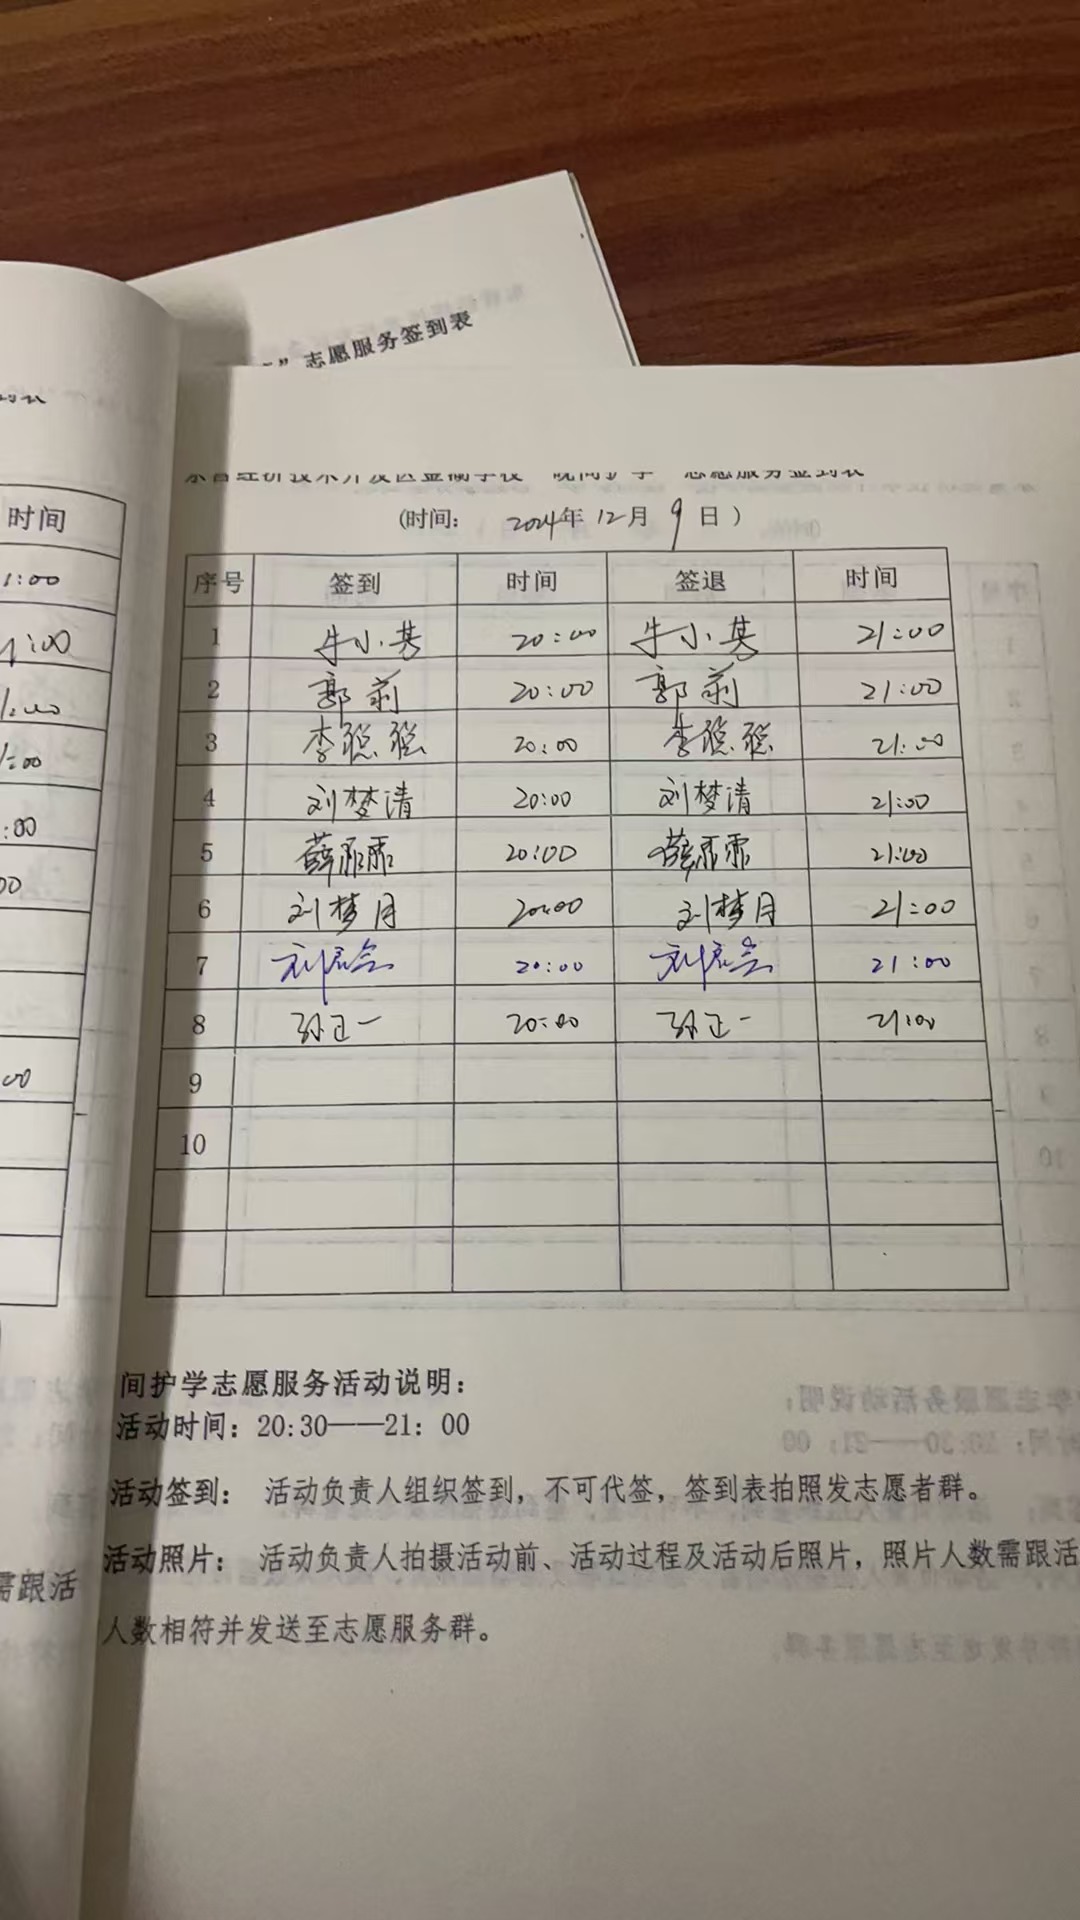 ”志愿服务签到表
时间
1:00
1:00
1:00
:00
00
00
需跟活
经济技术开发区金 学校“晚间护学”志愿服务签到表
(时间: 2024年12月9日)
序号 签到 时间 签退 时间
1 牛小其 20:00 牛小其 21:00
2 郭莉 20:00 郭莉 21:00
3 李聪聪 20:00 李聪聪 21:00
4 刘梦清 20:00 刘梦清 21:00
5 薛 20:00 薛 21:00
6 刘梦月 20:00 刘梦月 21:00
7 刘 20:00 刘 21:00
8 孙正一 20:00 孙正一 21:00
9
10
间护学志愿服务活动说明:
活动时间: 20:30——21: 00
活动签到: 活动负责人组织签到, 不可代签, 签到表拍照发志愿者群。
活动照片: 活动负责人拍摄活动前、活动过程及活动后照片, 照片人数需跟活
人数相符并发送至志愿服务群。